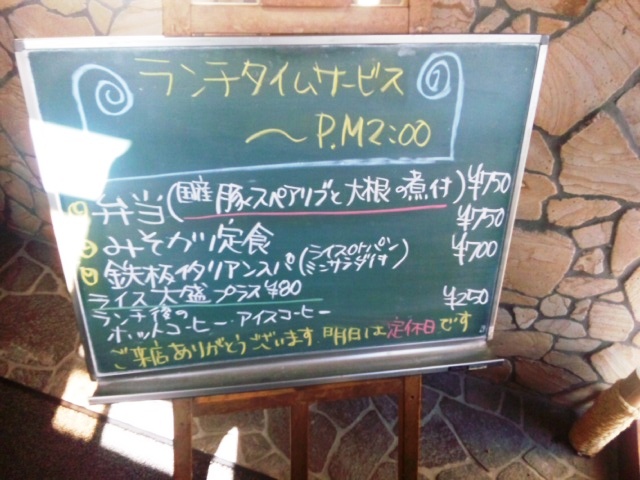 ランチタイムサービス
〜P.M2:00
弁当(国産豚スペアリブと大根の煮付)¥750
みそカツ定食 ¥750
鉄板イタリアンスパ(ライスorパン ミニサラダ付) ¥700
ライス大盛プラス¥80
ランチ後の
ホットコーヒー.アイスコーヒー ¥250
ご来店ありがとうございます.明日は定休日です